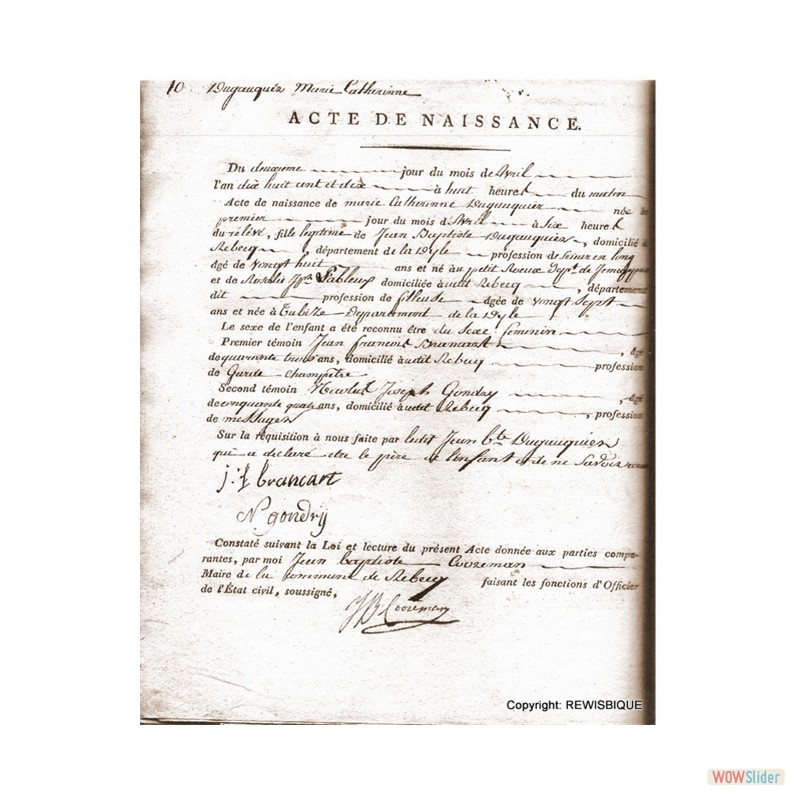 10 Dugauquier Marie Catherinne
ACTE DE NAISSANCE.
Du deuxieme jour du mois de Avril
l'an dix huit cent et dix à huit heures du matin
Acte de naissance de marie Catherinne Dugauquier née le
premier jour du mois d'Avril à Six heures
du relevé, fille légitime de Jean Baptiste Dugauquier, domicilié à
Rebecq, département de la Dyle profession de Scieur en long
âgé de vingt huit ans et né au petit Roeux Dept. de Jemappes
et de Rosalie Jph. Sableux domiciliée audit Rebecq, département
dit profession de fileuse âgée de vingt Sept
ans et née à Tubize Departement de la Dyle
Le sexe de l'enfant a été reconnu être du Sexe feminin
Premier témoin Jean francois Brancart, âgé
de quarante trois ans, domicilié audit Rebecq profession
de Garde champêtre
Second témoin Nicolas Joseph Gondry, âgé
de cinquante quatre ans, domicilié audit Rebecq, profession
de messager
Sur la réquisition à nous faite par ledit Jean bte Dugauquier
qui a declaré etre le père de l'enfant et de ne Savoir
j: f brancart
N gondrÿ
Constaté suivant la Loi et lecture du présent Acte donnée aux parties compa-
rantes, par moi Jean baptiste Cooreman
Maire de la Commune de Rebecq faisant les fonctions d'Officier
de l'État civil, soussigné,
JB Cooreman
Copyright: REWISBIQUE
WOWSlider